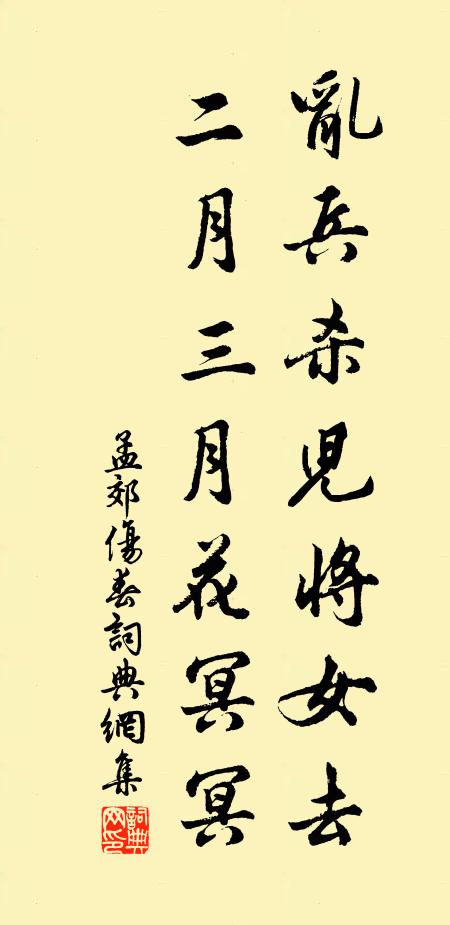 亂兵杀兒將女去
二月三月花冥冥
孟郊傷春詞典網集
詞典网印